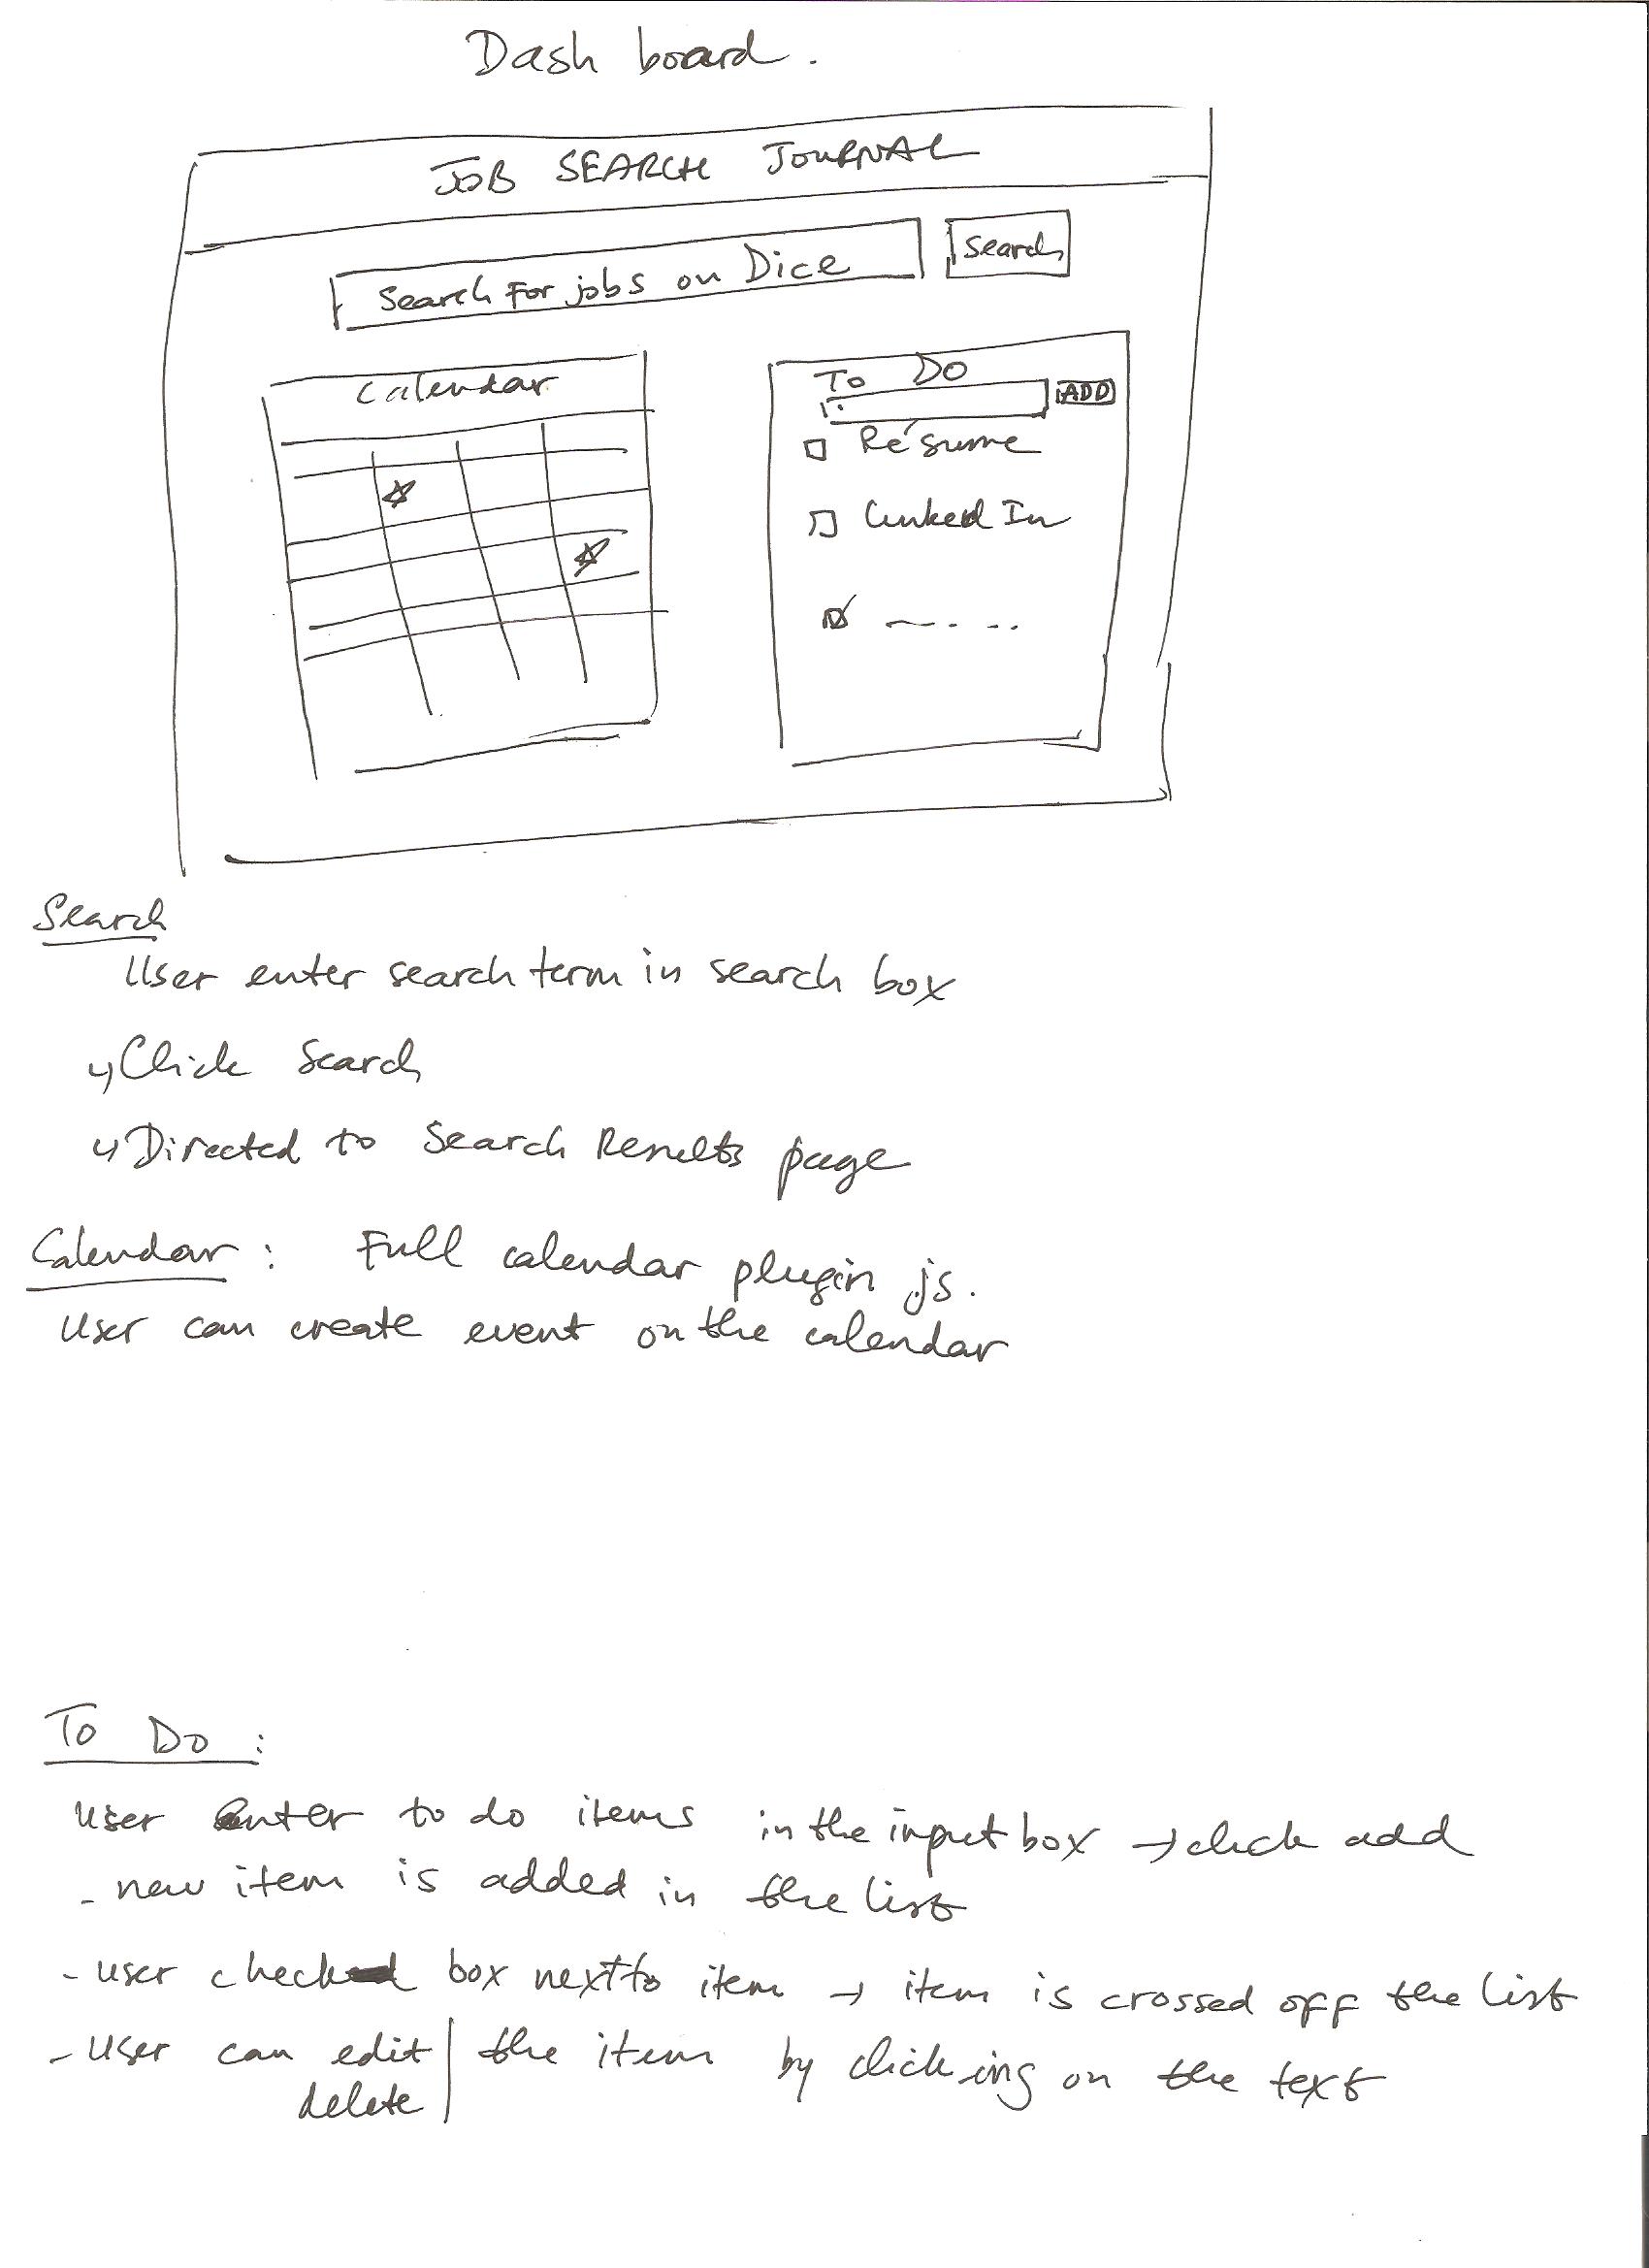 Dash board.
JOB SEARCH JOURNAL
Search For jobs on Dice
Search
Calendar
To Do
ADD
Résume
Linked In
Search
User enter search term in search box
↳ Click Search
↳ Directed to Search Results page
Calendar : Full calendar plugin js.
User can create event on the calendar
To Do :
User enter to do items in the input box → click add
- new item is added in the list
- user check box next to item → item is crossed off the list
- User can edit | the item by clicking on the text
delete